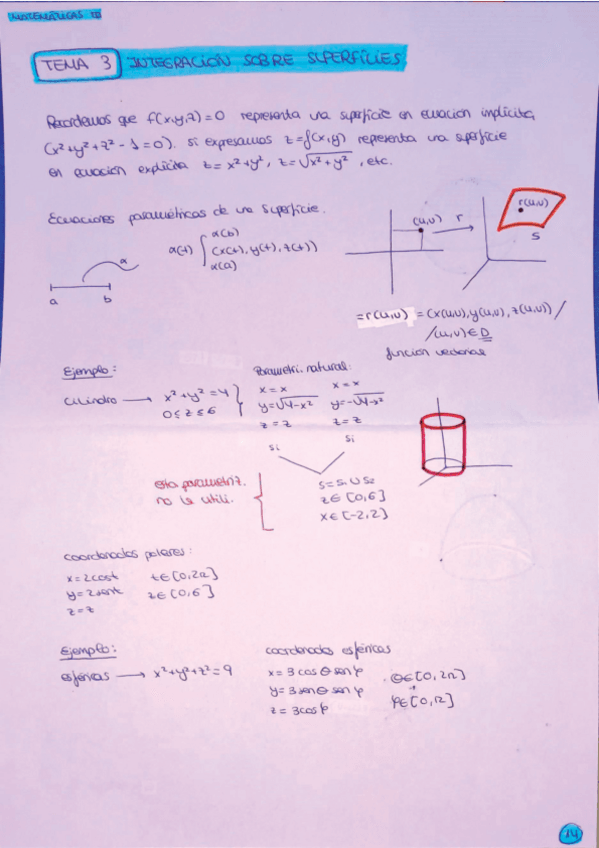 MATEMÁTICAS III
TEMA 3 INTEGRACIÓN SOBRE SUPERFICIES
Recordemos que f(x,y,z)=0 representa una superficie en ecuación implícita
(x²+y²+z²-1=0). si expresamos z=f(x,y) representa una superficie
en ecuación explícita z=x²+y², z=√x²+y², etc.
Ecuaciones paramétricas de una superficie.
α
a b
α(t)
α(b)
(x(t), y(t), z(t))
α(a)
(u,v) r
r(u,v)
S
=r(u,v) = (x(u,v), y(u,v), z(u,v)) /
/(u,v)∈D
función vectorial
Ejemplo:
cilindro → x²+y²=4
0≤z≤6
Parametri. natural:
x=x x=x
y=√4-x² y=-√4-x²
z=z z=z
si si
esta parametriz.
no la utili.
z∈[0,6]
x∈[-2,2]
coordenadas polares:
x=2cost t∈[0,2π]
y=2sent z∈[0,6]
z=z
Ejemplo:
esféricas → x²+y²+z²=9
coordenadas esféricas
x=3cosθ senφ θ∈[0,2π]
y=3senθ senφ φ∈[0,π]
z=3cosφ
14